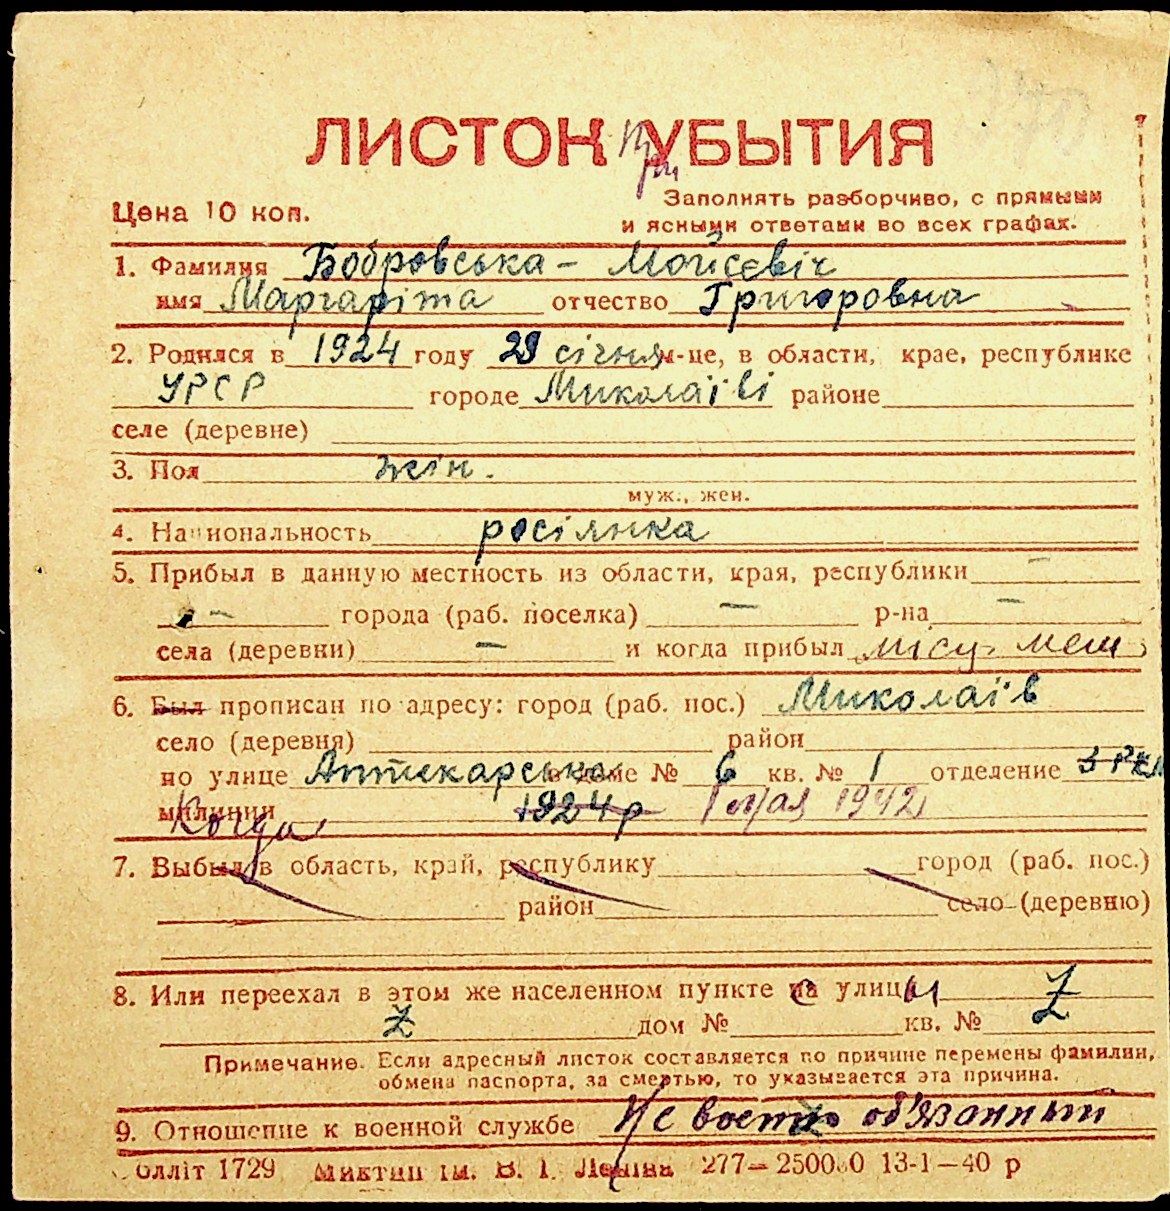 ЛИСТОК УБЫТИЯ
При
Цена 10 коп.
Заполнять разборчиво, с прямыми
и ясными ответами во всех графах.
1. Фамилия Бобровська - Мойсєвіч
имя Маргаріта отчество Григоровна
2. Родился в 1924 году 29 січня м-це, в области, крае, республике
УРСР городе Миколаїві районе
селе (деревне)
3. Пол жін.
муж., жен.
4. Национальность росіянка
5. Прибыл в данную местность из области, края, республики —
— города (раб. поселка) — р-на —
села (деревни) — и когда прибыл місц. меш
6. Был прописан по адресу: город (раб. пос.) Миколаїв
село (деревня) район
по улице Аптекарська в доме № 6 кв. № 1 отделение 3 РКМ
милиции 1924 р 1 мая 1942
Когда
7. Выбыл в область, край, республику город (раб. пос.)
район село (деревню)
8. Или переехал в этом же населенном пункте с улицы Z
Z дом № кв. №
Примечание. Если адресный листок составляется по причине перемены фамилии,
обмена паспорта, за смертью, то указывается эта причина.
9. Отношение к военной службе Не военно об'язанный
Облліт 1729 Миктип ім. В. І. Леніна 277—250000 13-1—40 р